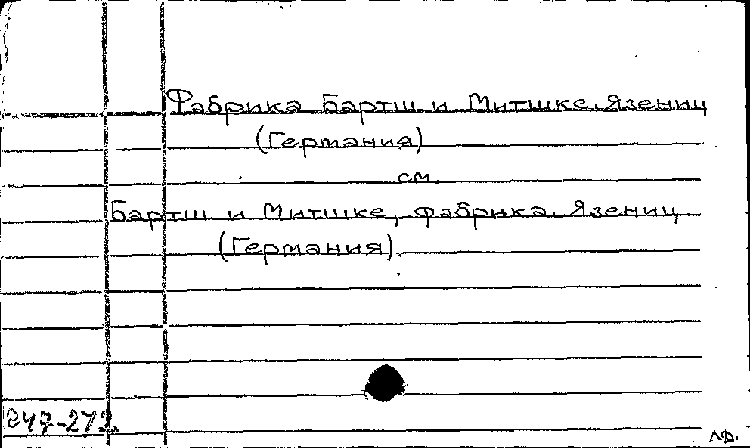 Фабрика Бартш и Митшке. Язениц
(Германия)
см.
Бартш и Митшке, фабрика. Язениц
(Германия).
247-272.
Л.Ф.